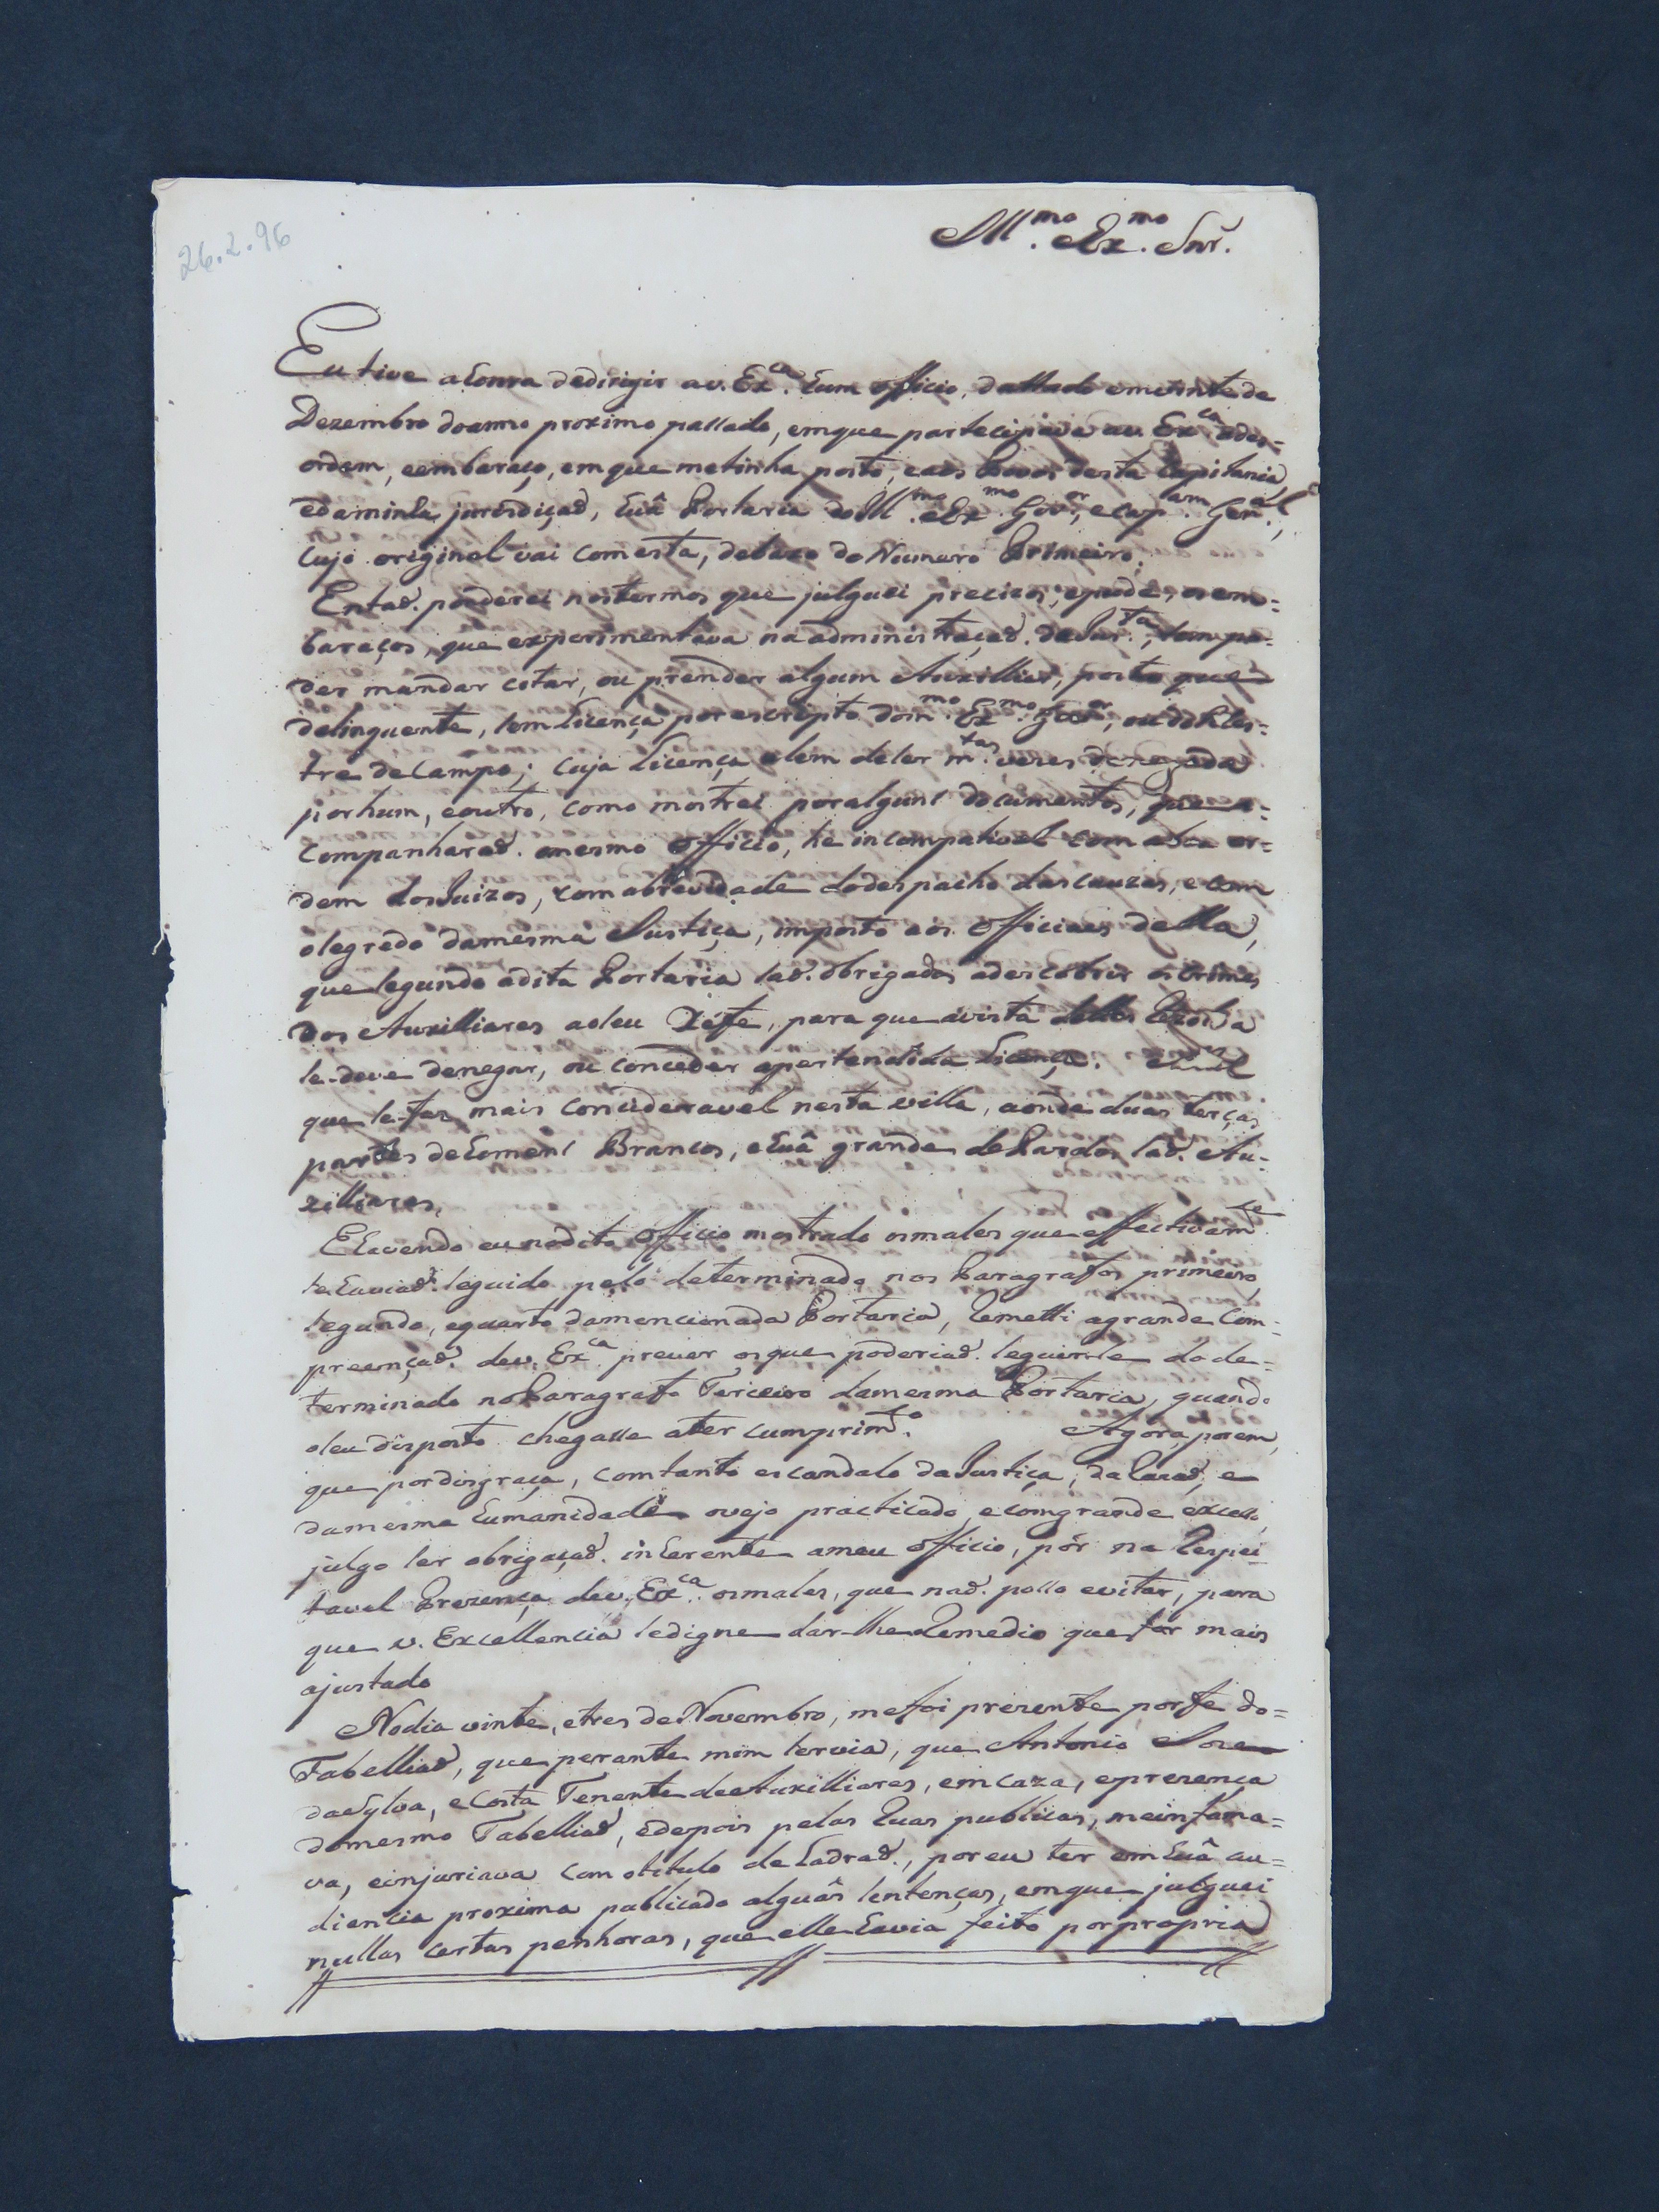 26.2.96
Ill.mo Ex.mo Snr.
Eu tive a honra de dirigir a v. Ex.ca hum officio, dattado em vinte de
Dezembro do anno proximo passado, em que partecipava a v. Ex.ca a des=
ordem, e embaraço, em que me tinha posto, e aos Povos desta Capitania,
e da minha jurisdiçaõ, huâ Portaria do Ill.mo Ex.mo Gov.or, e Cap.am Gen.al,
cujo original vai com esta, debaxo do Numero Primeiro.
Entaõ ponderei nos termos que julguei precizos, e pude, os em=
baraços, que experimentava na administraçaõ da Just.ça, sem po=
der mandar citar, ou prender algum Auxilliar, posto que
delinquente, sem licença por escripto do m.mo Ex.mo Gov.or, ou do Mes=
tre de Campo; cuja licença alem de ser m.tas vezes denegada
por hum, e outro, como mostrei por alguns documentos, que a=
companharaõ o mesmo officio, he incompativel com a boa or=
dem dos Juizos, com a brevidade do despacho das cauzas, e com
o segredo da mesma Justiça, imposto aos Officiaes della,
que segundo a dita Portaria saõ obrigados a descobrir os crimes
dos Auxilliares ao seu Xefe, para que a vista delles Rezolva
se deve denegar, ou conceder a pertendida licença.
que se faz mais concideravel nesta villa, aonde duas terças
partes de homens Brancos, e huâ grande de Pardos saõ Au=
xilliares.
E havendo eu no dito Officio mostrado os males que effectivam.te
se haviaõ seguido pelo determinado nos Paragrafos primeiro,
segundo, e quarto da mencionada Portaria, Remetti a grande Com=
preençaõ de v. Ex.ca prever os que poderiaõ seguir-se do de=
terminado no Paragrafo Terceiro da mesma Portaria, quando
o seu disposto chegasse a ter cumprim.to Agora, porem,
que por disgraça, com tanto escandalo da Justiça, da Razaõ, e
da mesma humanidade o vejo practicado, e com grande excesso,
julgo ser obrigaçaõ inherente a meu officio, pôr na Respei
tavel Prezença de v. Ex.ca os males, que naõ posso evitar, para
que v. Excellencia se digne dar-lhe o Remedio que for mais
ajustado
No dia vinte, e tres de Novembro, me foi prezente por fe do=
Tabelliaõ, que perante mim servia, que Antonio Joze
da Sylva, e Costa Tenente de Auxilliares, em caza, e prezença
do mesmo Tabelliaõ, e depois pelas Ruas publicas, me infama=
va, e injuriava com o titulo de Ladraõ, por eu ter em huâ au=
diencia proxima publicado alguâs sentenças, em que julguei
nullas certas penhoras, que elle havia feito por propria